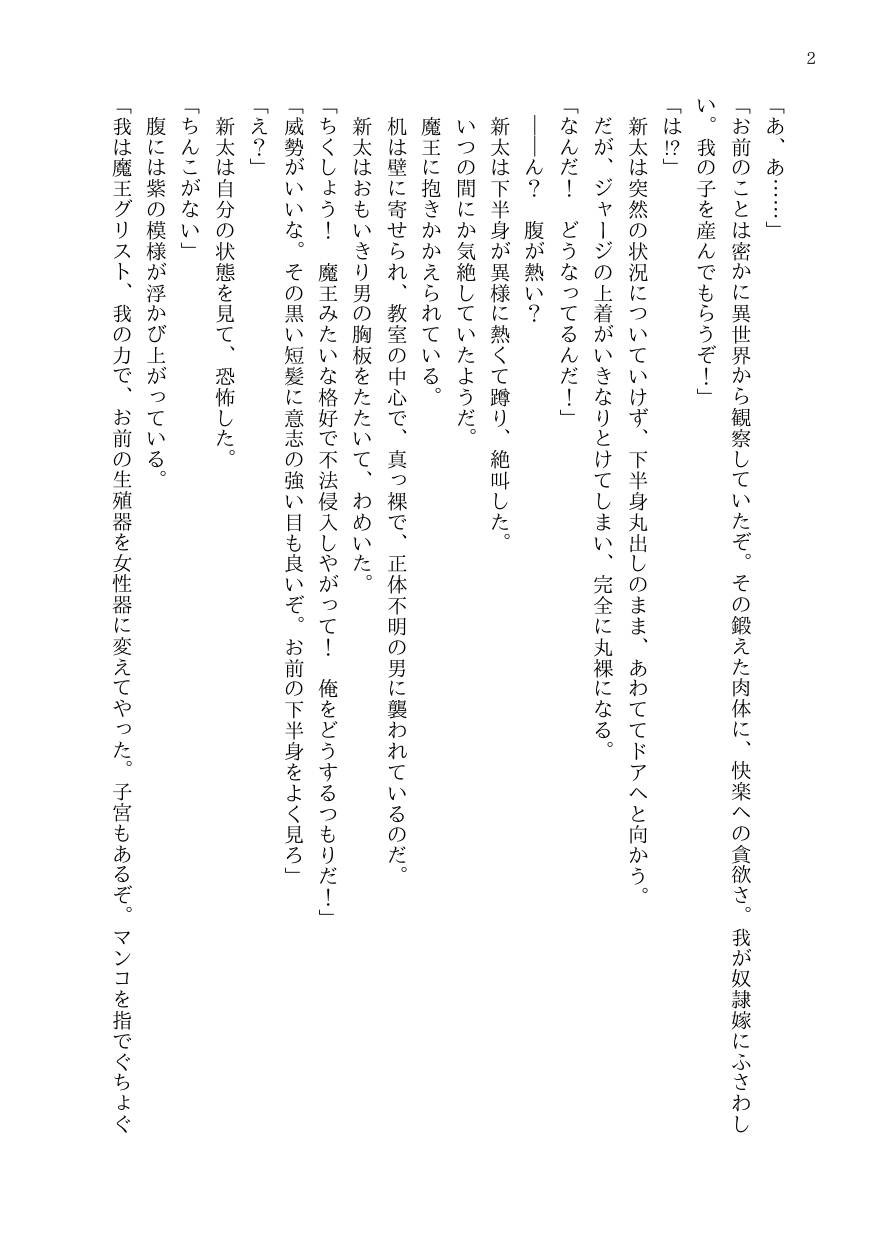 2
「あ、あ……」
「お前のことは密かに異世界から観察していたぞ。その鍛えた肉体に、快楽への貪欲さ。我が奴隷嫁にふさわし
い。我の子を産んでもらうぞ！」
「は!?」
新太は突然の状況についていけず、下半身丸出しのまま、あわててドアへと向かう。
だが、ジャージの上着がいきなりとけてしまい、完全に丸裸になる。
「なんだ！　どうなってるんだ！」
――ん？　腹が熱い？
新太は下半身が異様に熱くて蹲り、絶叫した。
いつの間にか気絶していたようだ。
魔王に抱きかかえられている。
机は壁に寄せられ、教室の中心で、真っ裸で、正体不明の男に襲われているのだ。
新太はおもいきり男の胸板をたたいて、わめいた。
「ちくしょう！　魔王みたいな格好で不法侵入しやがって！　俺をどうするつもりだ！」
「威勢がいいな。その黒い短髪に意志の強い目も良いぞ。お前の下半身をよく見ろ」
「え？」
新太は自分の状態を見て、恐怖した。
「ちんこがない」
腹には紫の模様が浮かび上がっている。
「我は魔王グリスト、我の力で、お前の生殖器を女性器に変えてやった。子宮もあるぞ。マンコを指でぐちょぐ